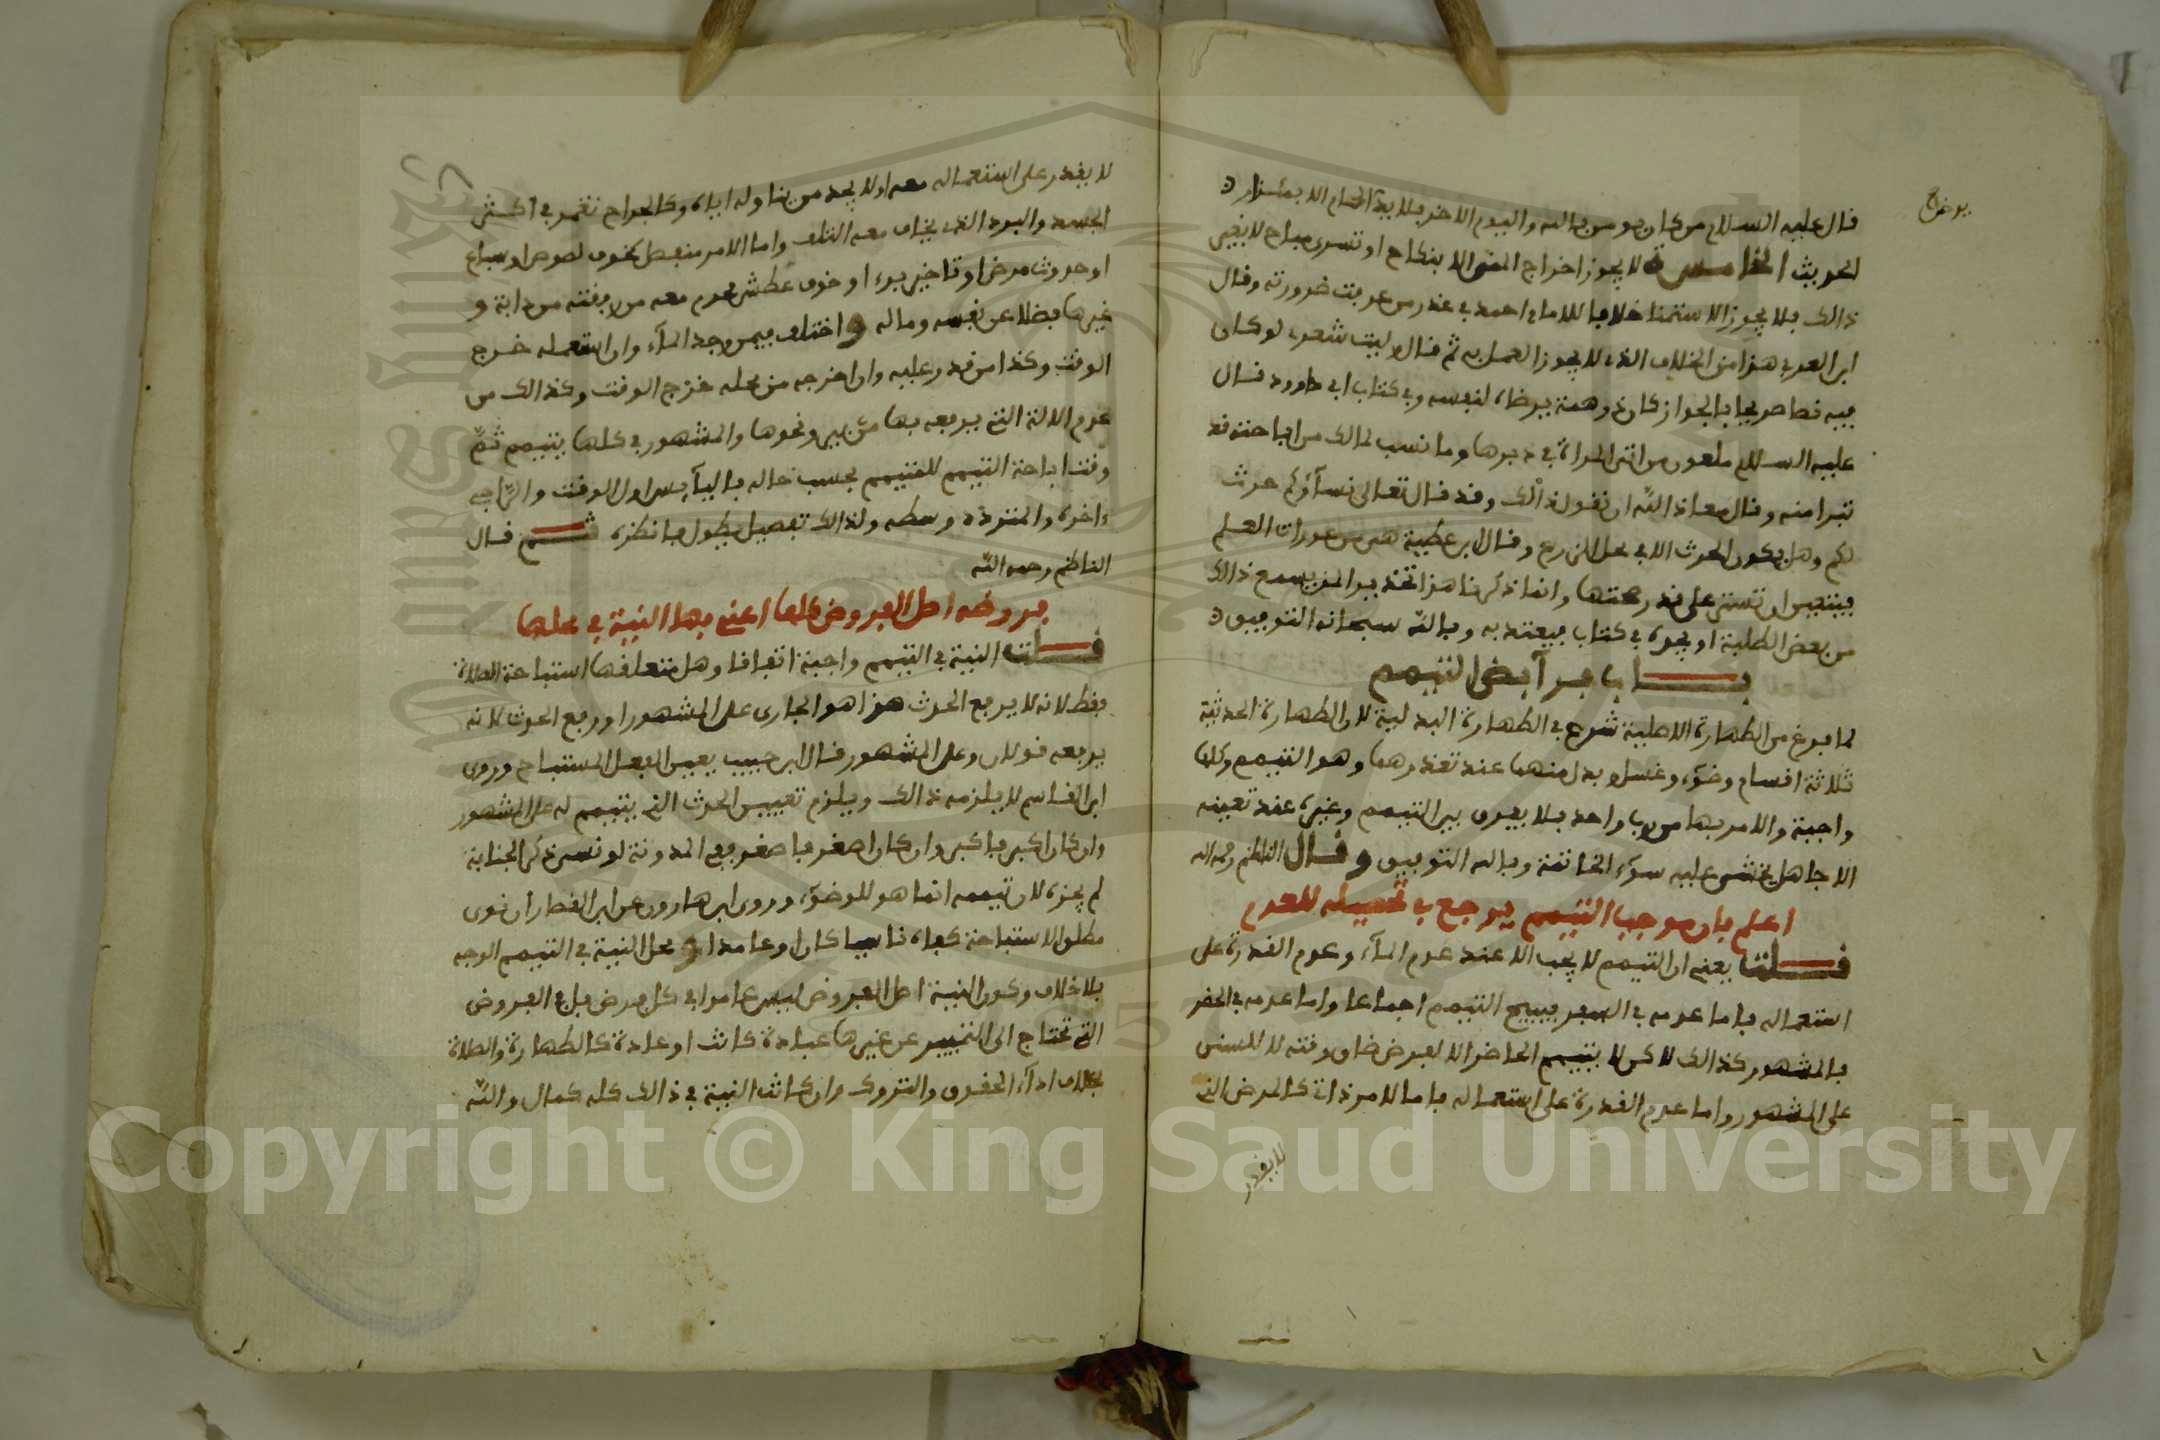 قال عليه السلام من كان يومن بالله واليوم الاخر فلا يدخل الحمام الا بمئزار
الحديث الخامسة لا يجوز اخراج المنى الا بنكاح او تسرى مباح لا بغير
ذالك فلا يجوز الاستمنا خلافا للامام احمد في عذر من عدمت ضرورته وقال
ابن العربي هذا من الخلاف الذى لا يجوز العمل به ثم قال وليت شعرى لو كان
فيه نص صريحا بالجواز كان ذو همة يرضاه لنفسه وفي كتاب ابى داوود قال
عليه السلام ملعون من اتى المراة في دبرها وما نسب لمالك من اباحته فد
تبرا منه وقال معاذ الله ان نقول ذالك وقد قال تعالى نسآؤكم حرث
لكم وهل يكون الحرث الا في محل الزرع وقال ابن عطية هى من عورات العلم
فينبغى ان تستتر على قدر وانما ذكرنا هذا تحذيرا لمن يسمع ذالك
من بعض الطلبة او يجده في كتاب فيعتد به وبالله سبحانه التوفيق
باب فرآيض التيمم
لما فرغ من الطهارة الاصلية شرع في الطهارة البدلية لان الطهارة الحدثية
ثلاثة اقسام وضوء وغسل وبدل منهما عند تعذرهما وهو التيمم وكلها
واجبة والامر بها من رب واحد فلا يفرق بين التيمم وغيره عند تعينه
الا جاهل يخشى عليه سوء الخاتمة وبالله التوفيق وقال الناظم رحمه الله
اعلم بان موجب التيمم يرجع في تحصيله للعدم
قلت يعنى ان التيمم لا يجب الا عند عدم المآء وعدم القدرة على
استعماله فاما عدمه في السفر فيبيح التيمم اجماعا واما عدمه في الحضر
فالمشهور كذالك لاكن لا يتيمم الحاضر الا لفرض ضاق وقته لا للسنن
على المشهور واما عدم القدرة على استعماله فاما لامر ذاتى كالمرض الذى
لا يقدر
لا يقدر على استعماله معه او لا يجد من يناوله اياه وكالجراح تغمر في اكثر
الجسد والبرد الذى يخاف معه التلف واما لامر منفصل كخوف لصوص او سباع
او حدوث مرض او تاخير برء او خوف عطش محرم معه من رفقته من دابة و
غيرها فضلا عن نفسه وماله واختلف فيمن وجد المآء وان استعمله خرج
الوقت وكذا من قدر عليه وان اخرجه من محله خرج الوقت وكذالك من
عدم الالة التى يرفعه بها من بير ونحوها والمشهور في كلها يتيمم ثم
وقت اباحة التيمم للمتيمم بحسب حاله فاليآيس اول الوقت والراجى
ءاخره والمتردد وسطه ولذالك تفصيل يطول فانظره ثم قال
الناظم رحمه الله
فروضه اصل الفروض كلها اعنى بها النية في محلها
قلت النية في التيمم واجبة اتفاقا وهل متعلقها استباحة الصلاة
فقط لانه لا يرفع الحدث هذا هو الجارى على المشهور او رفع الحدث لانه
يرفعه قولان وعلى المشهور قال ابن حبيب يعين الفعل المستباح وروى
ابن القاسم لا يلزمه ذالك ويلزم تعيين الحدث الذى يتيمم له على المشهور
وان كان اكبر فاكبر وان كان اصغر فاصغر ففى المدونة لو نسى ذكر الجنابة
لم يجزه لان تيممه انما هو للوضوء وروى ابن هارون عن ابن القصار ان نوى
مطلق الاستباحة كفاه ناسيا كان او عامدا ومحل النية في التيمم الوجه
بلا خلاف وكون النية اصل الفروض ليس عاما في كل فرض بل في الفروض
التى تحتاج الى التمييز عن غيرها عبادة كانت او عادة كالطهارة والصلاة
بخلاف ادآء الحقوق والتروك وان كانت النية في ذالك كله كمال والله
Copyright © King Saud University